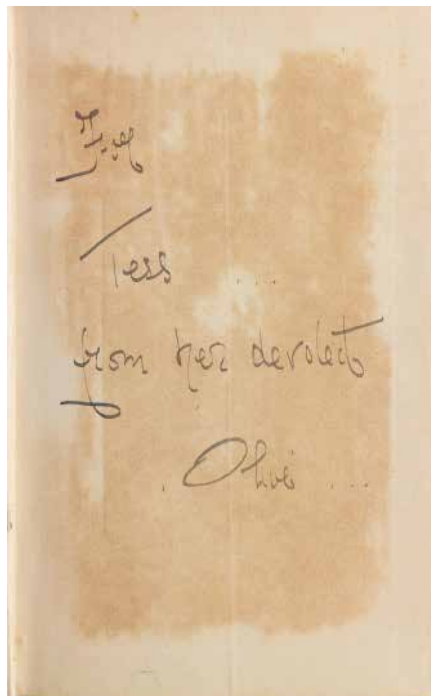 For
Tess ....
from her devoted
. Olive ....